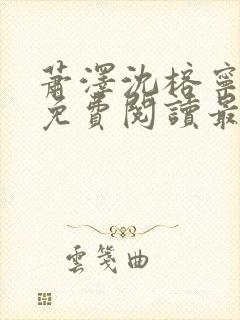 蕭澤沈榕寧
免費閱讀最
雲箋曲